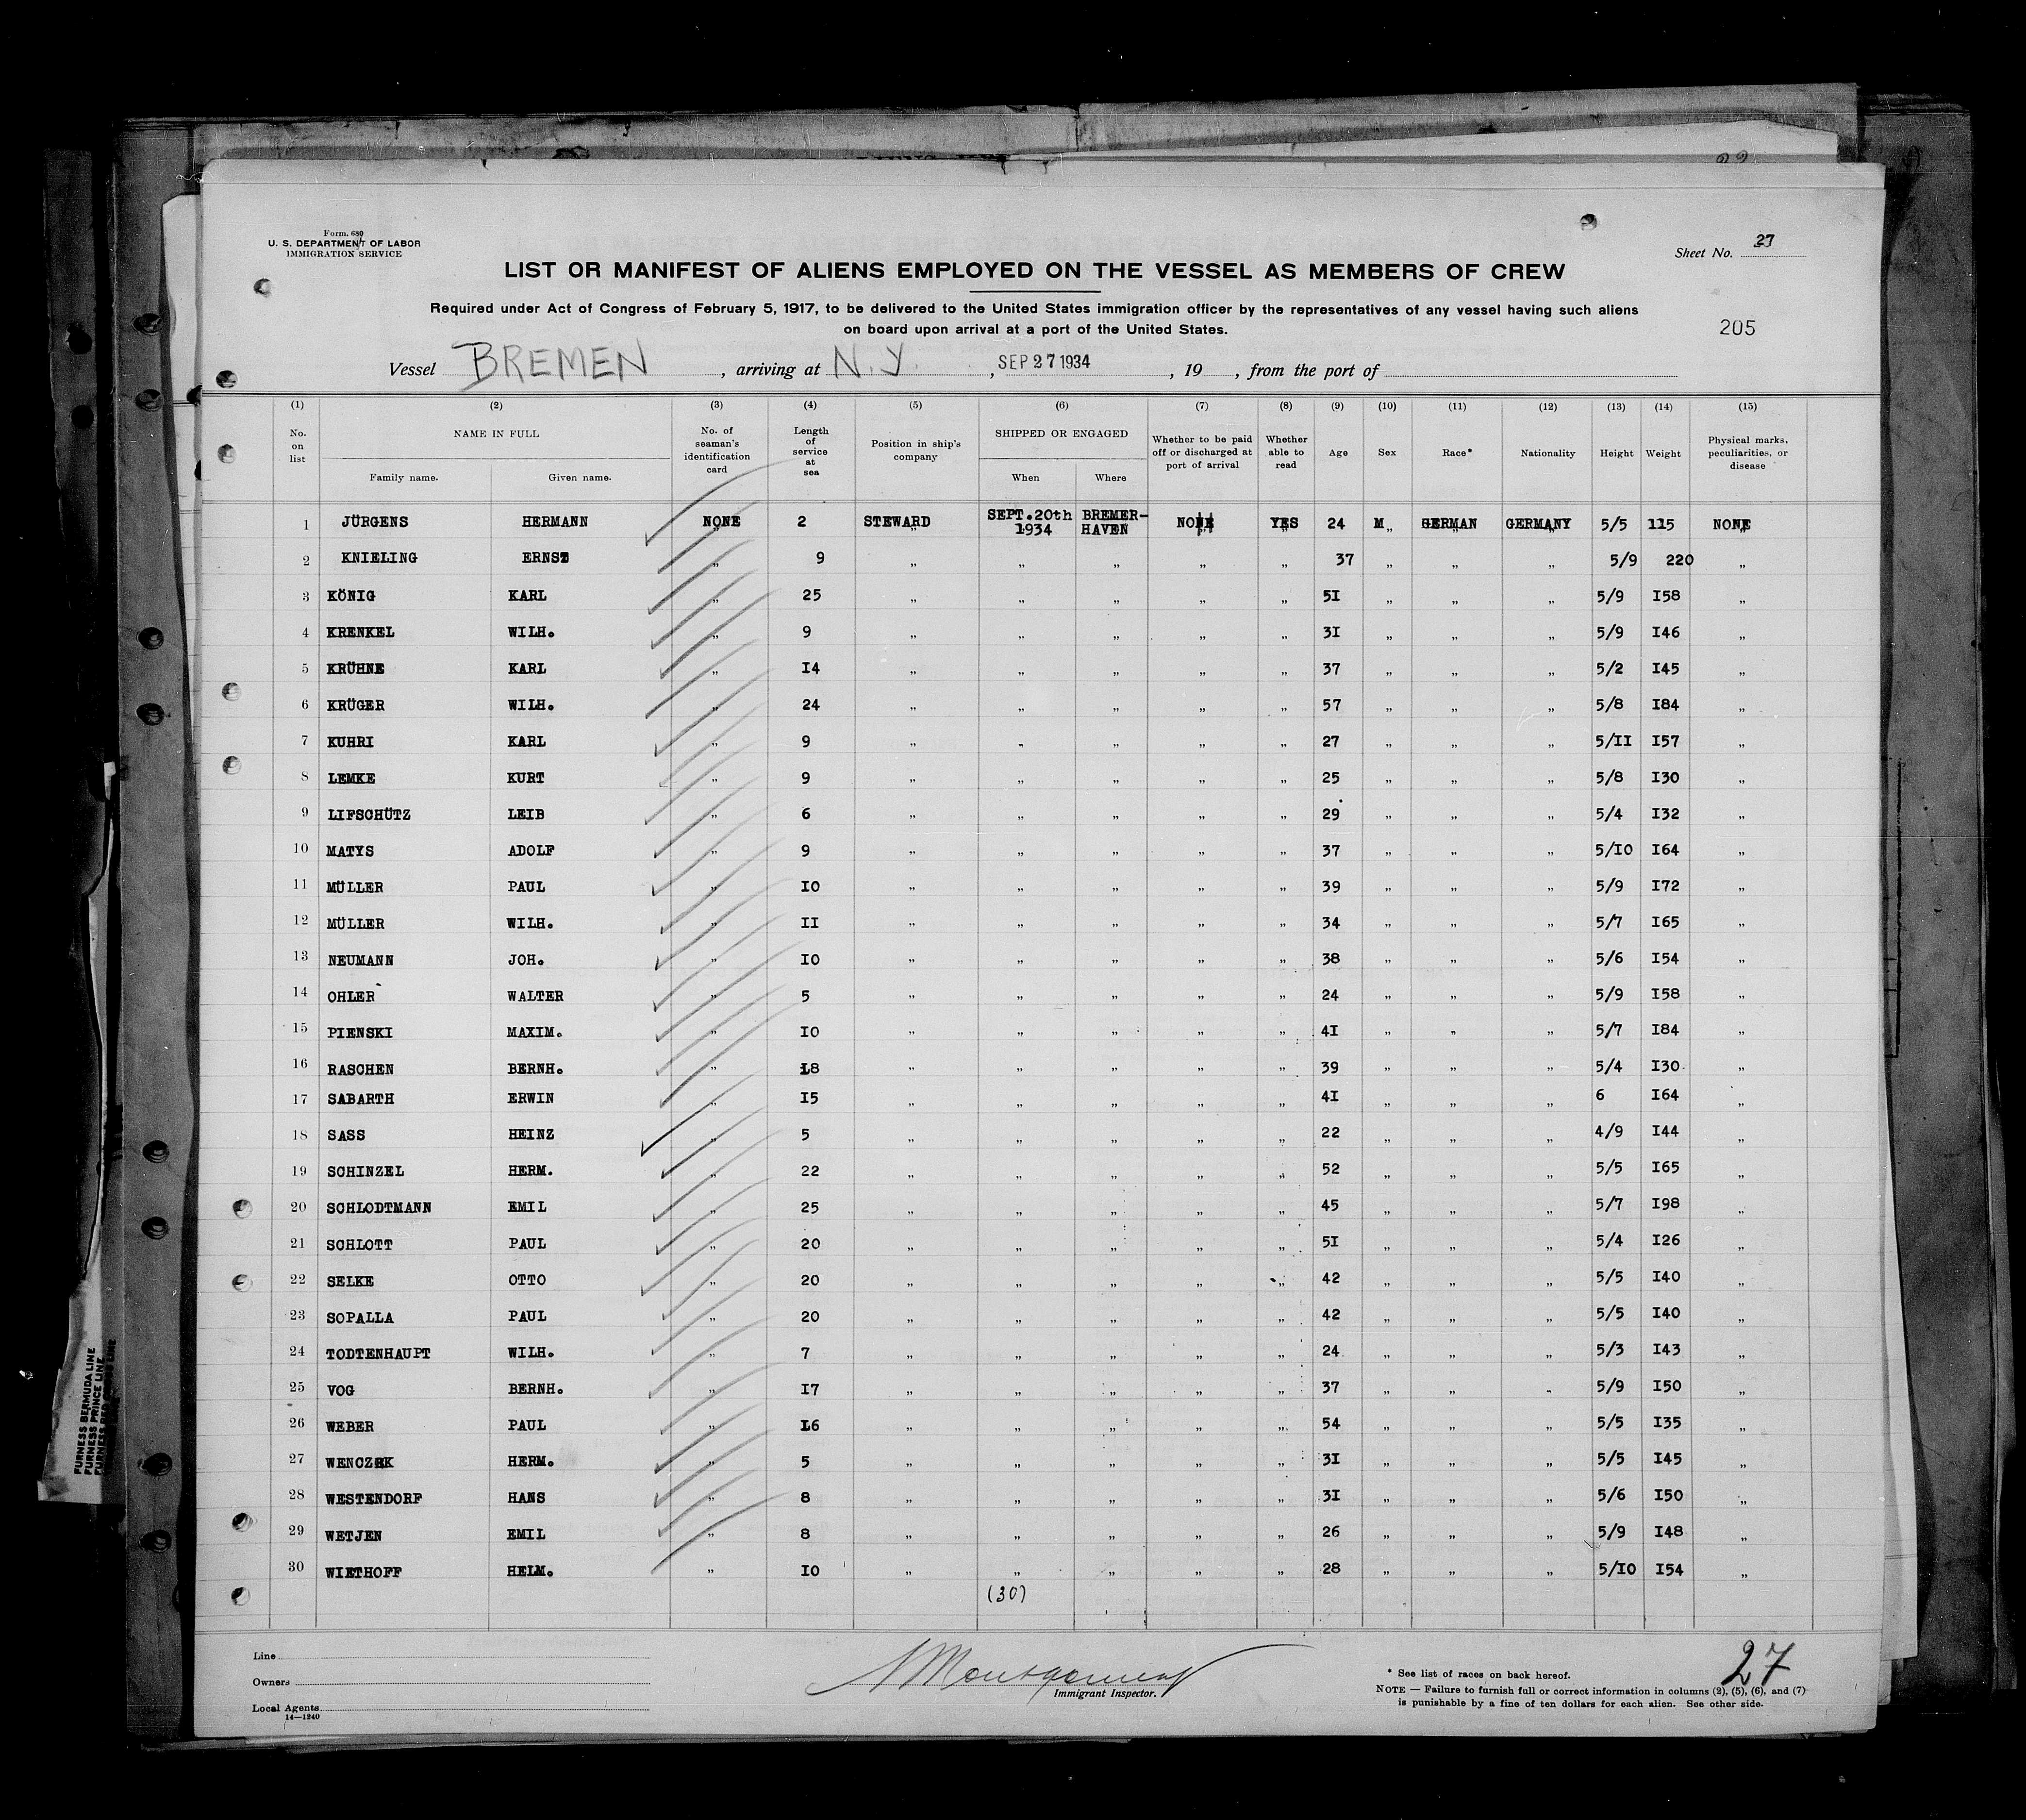 Form. 680
U. S. DEPARTMENT OF LABOR
IMMIGRATION SERVICE
Sheet No. 27
LIST OR MANIFEST OF ALIENS EMPLOYED ON THE VESSEL AS MEMBERS OF CREW
Required under Act of Congress of February 5, 1917, to be delivered to the United States immigration officer by the representatives of any vessel having such aliens
on board upon arrival at a port of the United States.
205
Vessel BREMEN, arriving at N.Y., SEP 27 1934, 19 , from the port of
(1) (2) (3) (4) (5) (6) (7) (8) (9) (10) (11) (12) (13) (14) (15)
No. on list NAME IN FULL Family name. Given name. No. of seaman's identification card Length of service at sea Position in ship's company SHIPPED OR ENGAGED When Where Whether to be paid off or discharged at port of arrival Whether able to read Age Sex Race* Nationality Height Weight Physical marks, peculiarities, or disease
1 JÜRGENS HERMANN NONE 2 STEWARD SEPT.20th 1934 BREMER-HAVEN NONE YES 24 M GERMAN GERMANY 5/5 115 NONE
2 KNIELING ERNST " 9 " " " " " 37 " " " 5/9 220 "
3 KÖNIG KARL " 25 " " " " " 51 " " " 5/9 158 "
4 KRENKEL WILH. " 9 " " " " " 31 " " " 5/9 146 "
5 KRÜHNE KARL " 14 " " " " " 37 " " " 5/2 145 "
6 KRÜGER WILH. " 24 " " " " " 57 " " " 5/8 184 "
7 KUHRI KARL " 9 " " " " " 27 " " " 5/11 157 "
8 LEMKE KURT " 9 " " " " " 25 " " " 5/8 130 "
9 LIFSCHÜTZ LEIB " 6 " " " " " 29 " " " 5/4 132 "
10 MATYS ADOLF " 9 " " " " " 37 " " " 5/10 164 "
11 MÜLLER PAUL " 10 " " " " " 39 " " " 5/9 172 "
12 MÜLLER WILH. " 11 " " " " " 34 " " " 5/7 165 "
13 NEUMANN JOH. " 10 " " " " " 38 " " " 5/6 154 "
14 OHLER WALTER " 5 " " " " " 24 " " " 5/9 158 "
15 PIENSKI MAXIM. " 10 " " " " " 41 " " " 5/7 184 "
16 RASCHEN BERNH. " 18 " " " " " 39 " " " 5/4 130 "
17 SABARTH ERWIN " 15 " " " " " 41 " " " 6 164 "
18 SASS HEINZ " 5 " " " " " 22 " " " 4/9 144 "
19 SCHINZEL HERM. " 22 " " " " " 52 " " " 5/5 165 "
20 SCHLODTMANN EMIL " 25 " " " " " 45 " " " 5/7 198 "
21 SCHLOTT PAUL " 20 " " " " " 51 " " " 5/4 126 "
22 SELKE OTTO " 20 " " " " " 42 " " " 5/5 140 "
23 SOPALLA PAUL " 20 " " " " " 42 " " " 5/5 140 "
24 TODTENHAUPT WILH. " 7 " " " " " 24 " " " 5/3 143 "
25 VOG BERNH. " 17 " " " " " 37 " " " 5/9 150 "
26 WEBER PAUL " 16 " " " " " 54 " " " 5/5 135 "
27 WENCZEK HERM. " 5 " " " " " 31 " " " 5/5 145 "
28 WESTENDORF HANS " 8 " " " " " 31 " " " 5/6 150 "
29 WETJEN EMIL " 8 " " " " " 26 " " " 5/9 148 "
30 WIETHOFF HELM. " 10 " " " " " 28 " " " 5/10 154 "
(30)
Line
Owners
Local Agents
14—1240
Montgomery
Immigrant Inspector.
* See list of races on back hereof.
NOTE — Failure to furnish full or correct information in columns (2), (5), (6), and (7)
is punishable by a fine of ten dollars for each alien. See other side.
27
FURNESS BERMUDA LINE
FURNESS PRINCE LINE